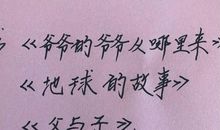 《爷爷的爷爷从哪里来》
《地球的故事》
《父与子》